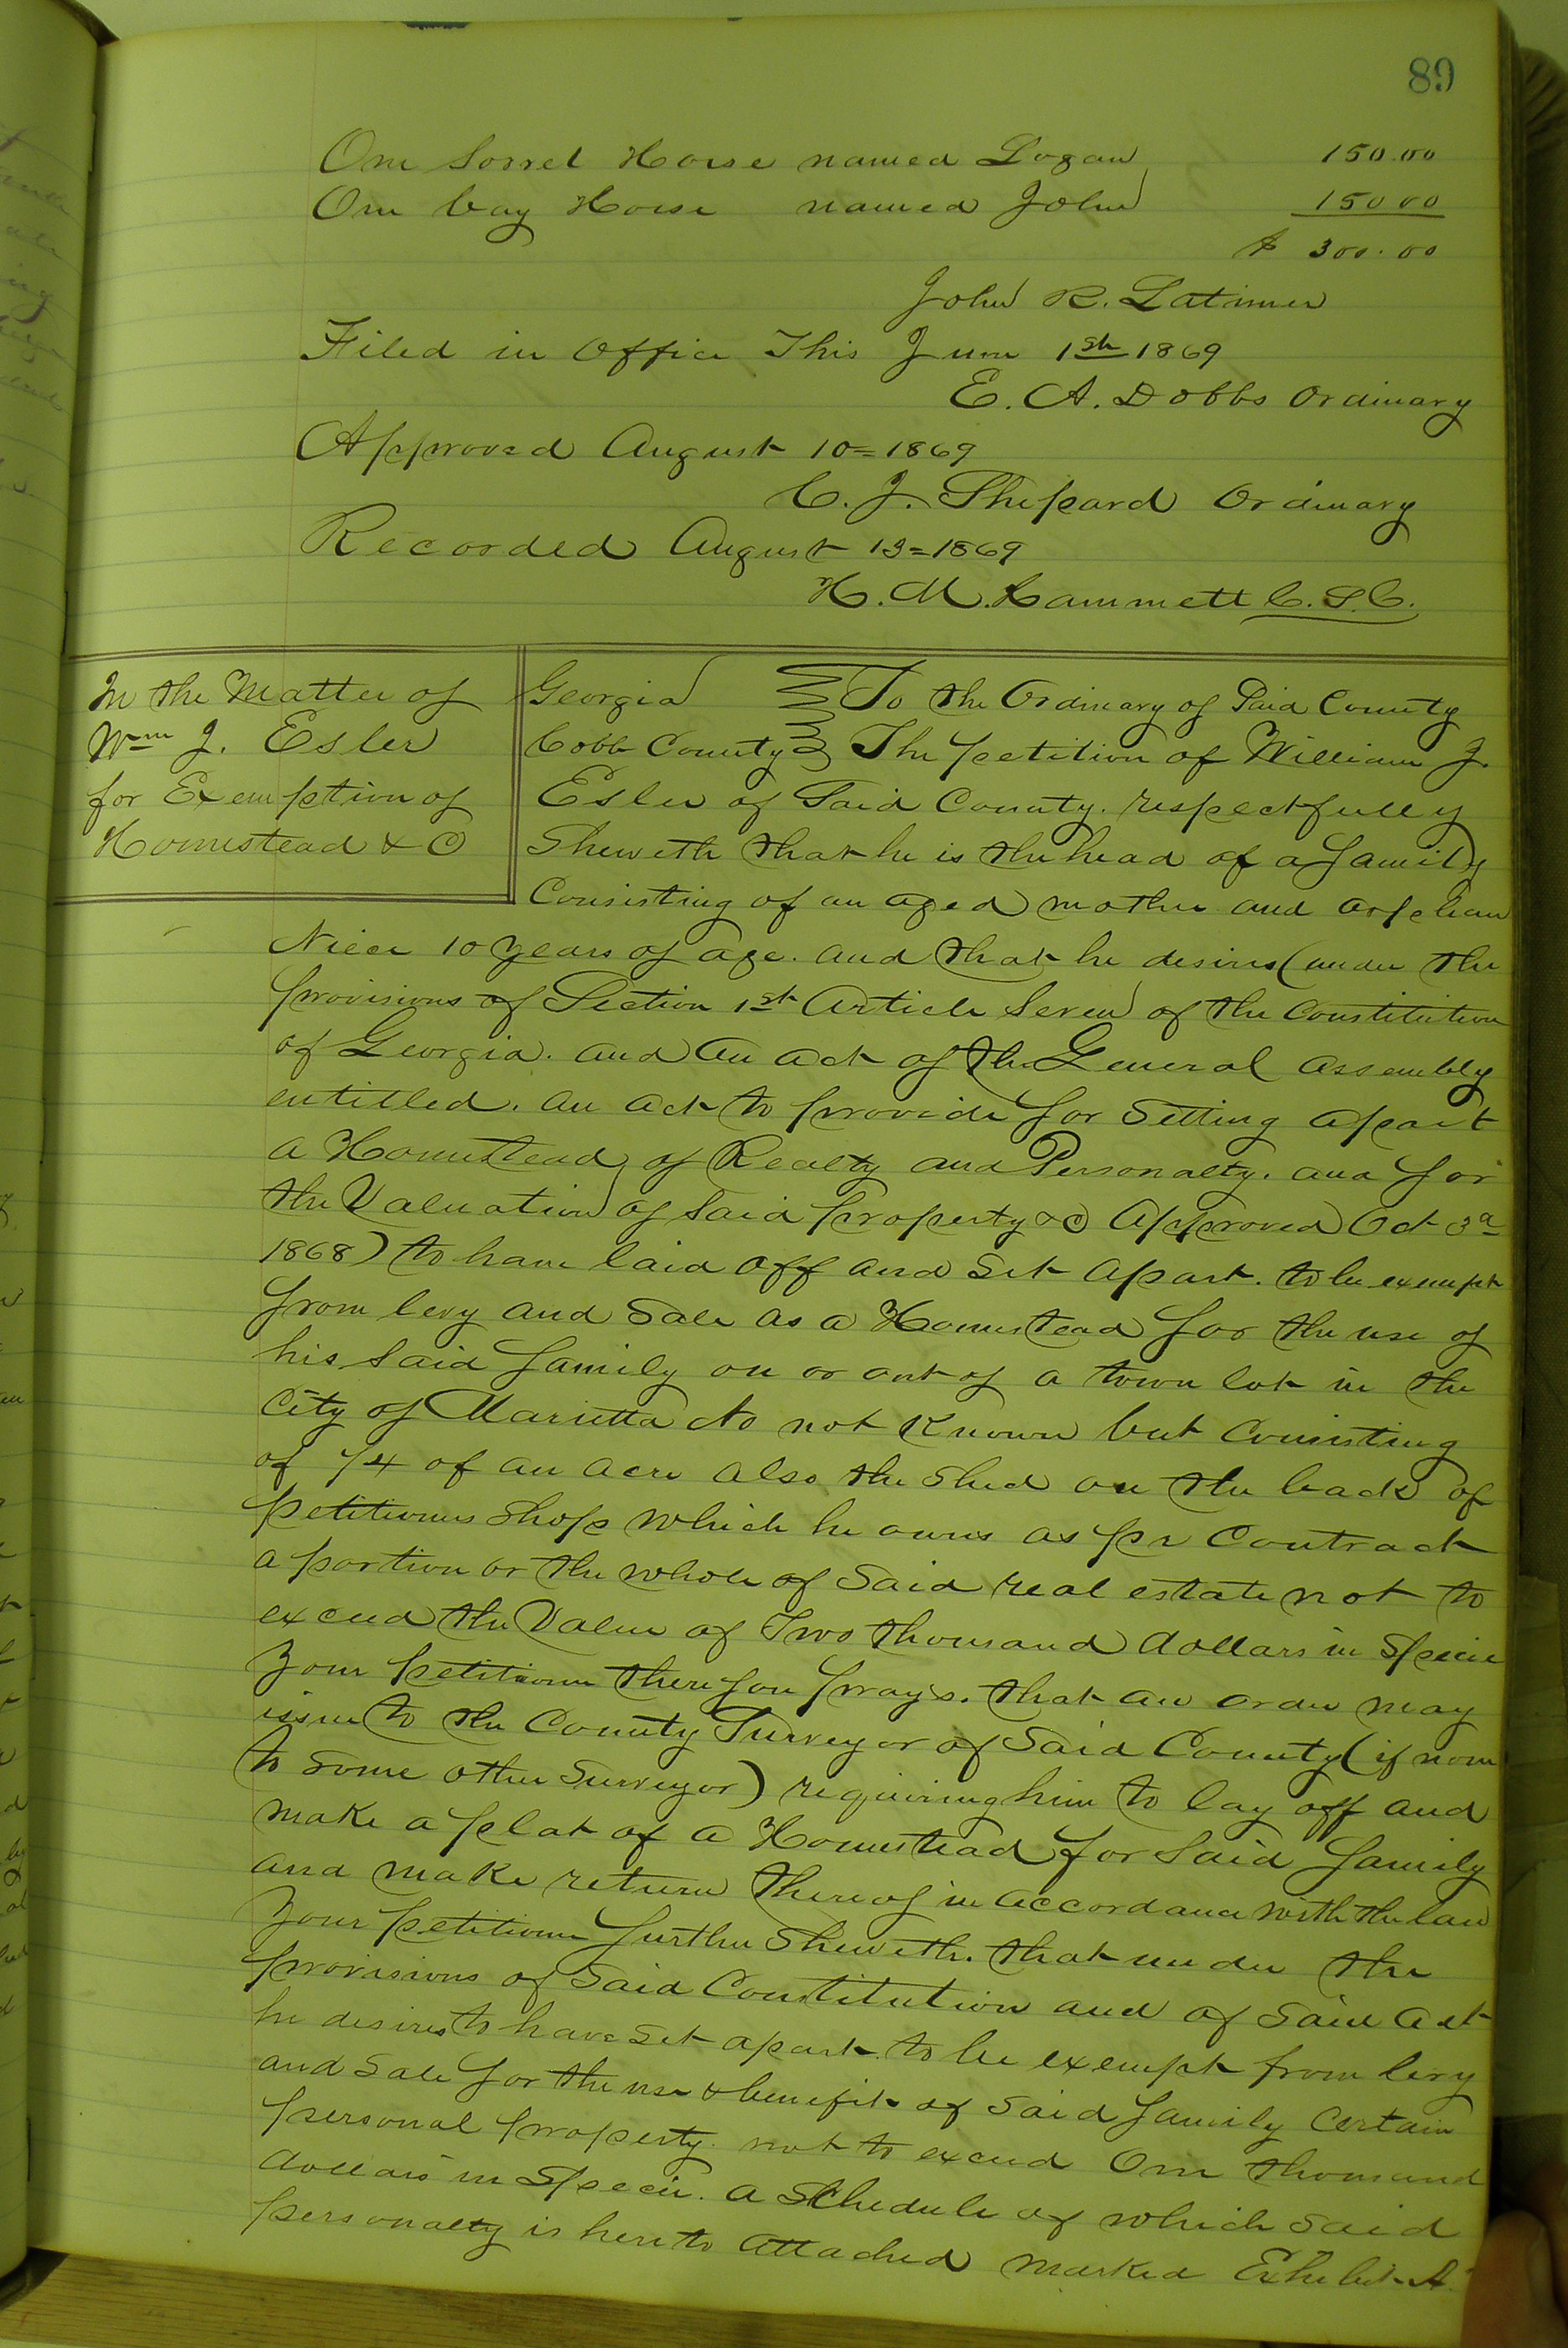 89
One Sorrel Horse named Logan 150.00
One bay Horse named John 150 00
$ 300.00
John R. Latimer
Filed in office This June 1st 1869
E. A. Dobbs Ordinary
Approved August 10=1869
C. J. Shepard Ordinary
Recorded August 13=1869
H. M. Hammett C.S.C.
In the Matter of
Wm J. Esler
for Exemption of
Homestead & C
Georgia To the Ordinary of Said County
Cobb County The petition of William J.
Esler of Said County. respectfully
Sheweth that he is the head of a family
Consisting of an aged mother and orphan
Niece 10 years of age. and that he desires (under the
provisions of Section 1st Article Seven of the Constitution
of Georgia. and an act of the General Assembly
entitled. an act to provide for Setting apart
a Homestead of Realty and Personalty. and for
the Valuation of Said property &c Approved Oct 3d
1868) to have laid off and Set apart. to be exempt
from levy and Sale as a Homestead for the use of
his Said family on or out of a town lot in the
City of Marietta No not Known but Consisting
of 1/4 of an acre also the Shed on the back of
petitioners Shop which he owns as pr Contract
a portion or the whole of Said real estate not to
exceed the Value of Two thousand dollars in Specie
Your petitioner therefore prays. that an order may
issue to the County Surveyor of Said County (if none
to Some other Surveyor) requiring him to lay off and
make a plat of a Homestead for Said family
and make return thereof in accordance with the law
Your petitioner further Sheweth. that under the
provisions of Said Constitution and of Said act
he desires to have Set apart. to be exempt from levy
and Sale for the use & benefit of Said family Certain
personal property. not to exceed One thousand
dollars in Specie. a Schedule of which Said
personalty is hereto attached marked Exhibit A